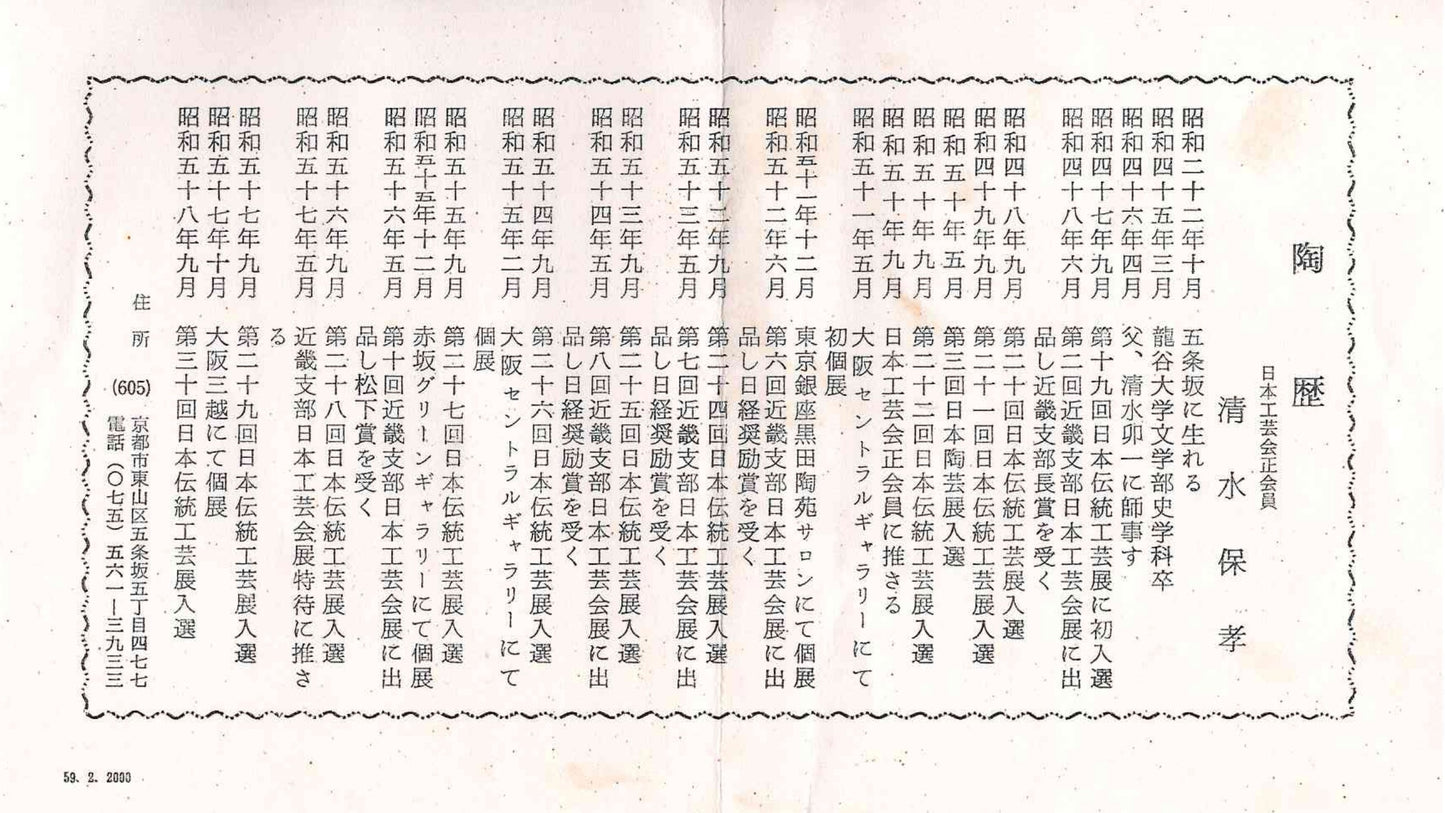 陶歴
日本工芸会正会員
清水保孝
昭和二十二年十月 五条坂に生れる
昭和四十五年三月 龍谷大学文学部史学科卒
昭和四十六年四月 父、清水卯一に師事す
昭和四十七年九月 第十九回日本伝統工芸展に初入選
昭和四十八年六月 第二回近畿支部日本工芸会展に出
品し近畿支部長賞を受く
昭和四十八年九月 第二十回日本伝統工芸展入選
昭和四十九年九月 第二十一回日本伝統工芸展入選
昭和五十年五月 第三回日本陶芸展入選
昭和五十年九月 第二十二回日本伝統工芸展入選
昭和五十年九月 日本工芸会正会員に推さる
昭和五十一年五月 大阪セントラルギャラリーにて
初個展
昭和五十一年十二月 東京銀座黒田陶苑サロンにて個展
昭和五十二年六月 第六回近畿支部日本工芸会展に出
品し日経奨励賞を受く
昭和五十二年九月 第二十四回日本伝統工芸展入選
昭和五十三年五月 第七回近畿支部日本工芸会展に出
品し日経奨励賞を受く
昭和五十三年九月 第二十五回日本伝統工芸展入選
昭和五十四年五月 第八回近畿支部日本工芸会展に出
品し日経奨励賞を受く
昭和五十四年九月 第二十六回日本伝統工芸展入選
昭和五十五年二月 大阪セントラルギャラリーにて
個展
昭和五十五年九月 第二十七回日本伝統工芸展入選
昭和五十五年十二月 赤坂グリーンギャラリーにて個展
昭和五十六年五月 第十回近畿支部日本工芸会展に出
品し松下賞を受く
昭和五十六年九月 第二十八回日本伝統工芸展入選
昭和五十七年五月 近畿支部日本工芸会展特待に推さ
る
昭和五十七年九月 第二十九回日本伝統工芸展入選
昭和五十七年十月 大阪三越にて個展
昭和五十八年九月 第三十回日本伝統工芸展入選
住所 (605) 京都市東山区五条坂五丁目四七七
電話(〇七五)五六一ー三九三三
59. 2. 2000